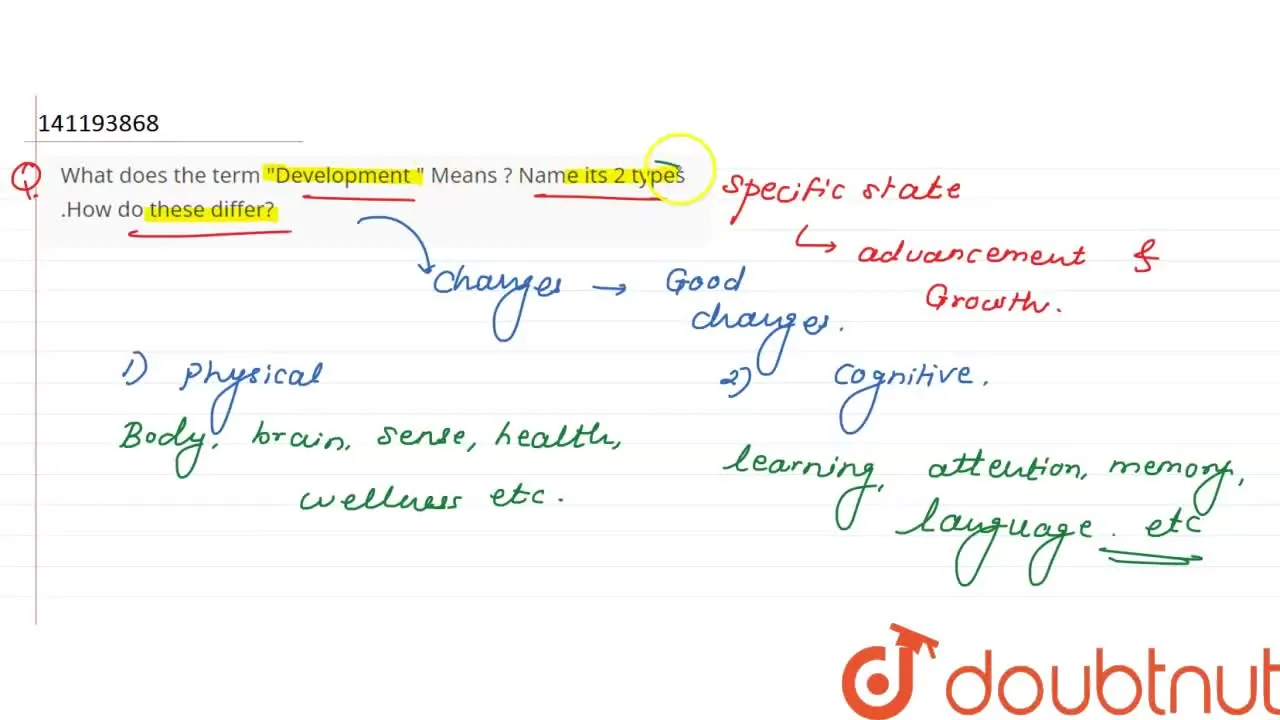 141193868
Q. What does the term "Development " Means ? Name its 2 types
.How do these differ?
specific state
advancement &
Growth.
Changes → Good
changes.
1) Physical
2) Cognitive.
Body, brain, sense, health,
wellness etc.
learning, attention, memory,
language. etc
doubtnut